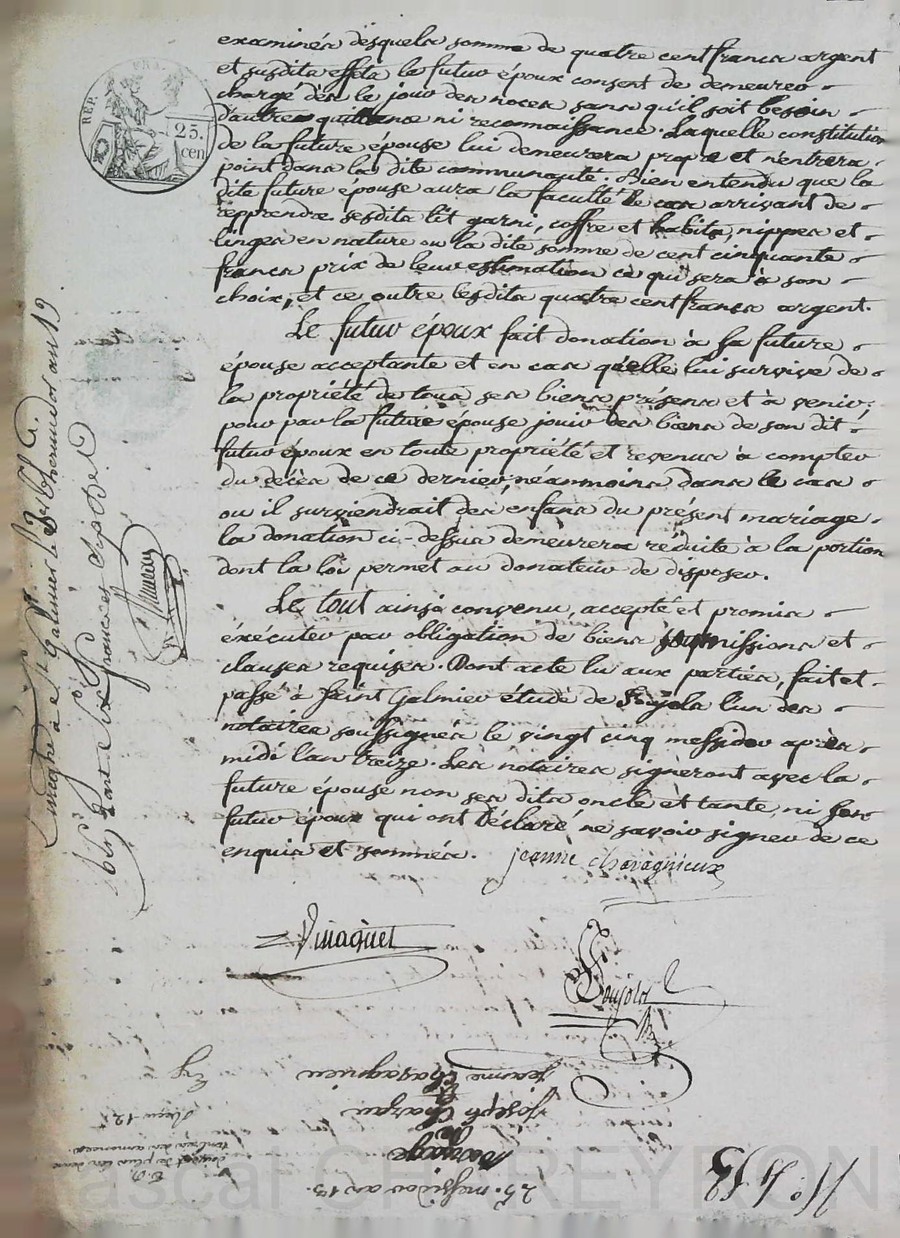 REP. FRA.
25.
cen
examinés desquels somme de quatre cent francs argent
et susdits effets le futur époux consent de demeurer
chargé dès le jour des noces sans qu'il soit besoin
d'autres quittance ni reconnaissance. Laquelle constitution
de la future épouse lui demeurera propre et n'entrera
point dans la dite communauté. Bien entendu que la
dite future épouse aura la faculté le cas arrivant de
reprendre sesdits lit garni, coffre et habits, nippes et
linges en nature ou la dite somme de cent cinquante
francs prix de leur estimation ce qui sera à son
choix, et ce outre lesdits quatre cent francs argent.
Le futur époux fait donation à sa future
épouse acceptante et en cas qu'elle lui survive de
la propriété de tous ses biens présens et à venir,
pour par la future épouse jouir des biens de son dit
futur époux en toute propriété et revenus à compter
du décès de ce dernier, néanmoins dans le cas
ou il surviendrait des enfans du présent mariage
la donation ci-dessus demeurera réduite à la portion
dont la loi permet au donateur de disposer.
Le tout ainsi convenu, accepté et promis
éxécuter par obligation de biens soumissions et
clauses requises. Dont acte lu aux parties, fait et
passé à Saint Galmier étude de Soujola l'un des
notaires soussignés le vingt cinq messidor après
midi l'an treize. Les notaires signeront avec la
future épouse non ses dits oncle et tante, ni son
futur époux qui ont déclaré ne savoir signer de ce
enquis et sommés.
jeanne chavagnieux
Soujola
Enregtré à St Galmier le
thermidor an 13.
francs
25. messidor an 13.
mariage
de
Joseph
&
Jeanne Chavagnieu
Reçu 12
N.° 453
Pascal CHAREYRON